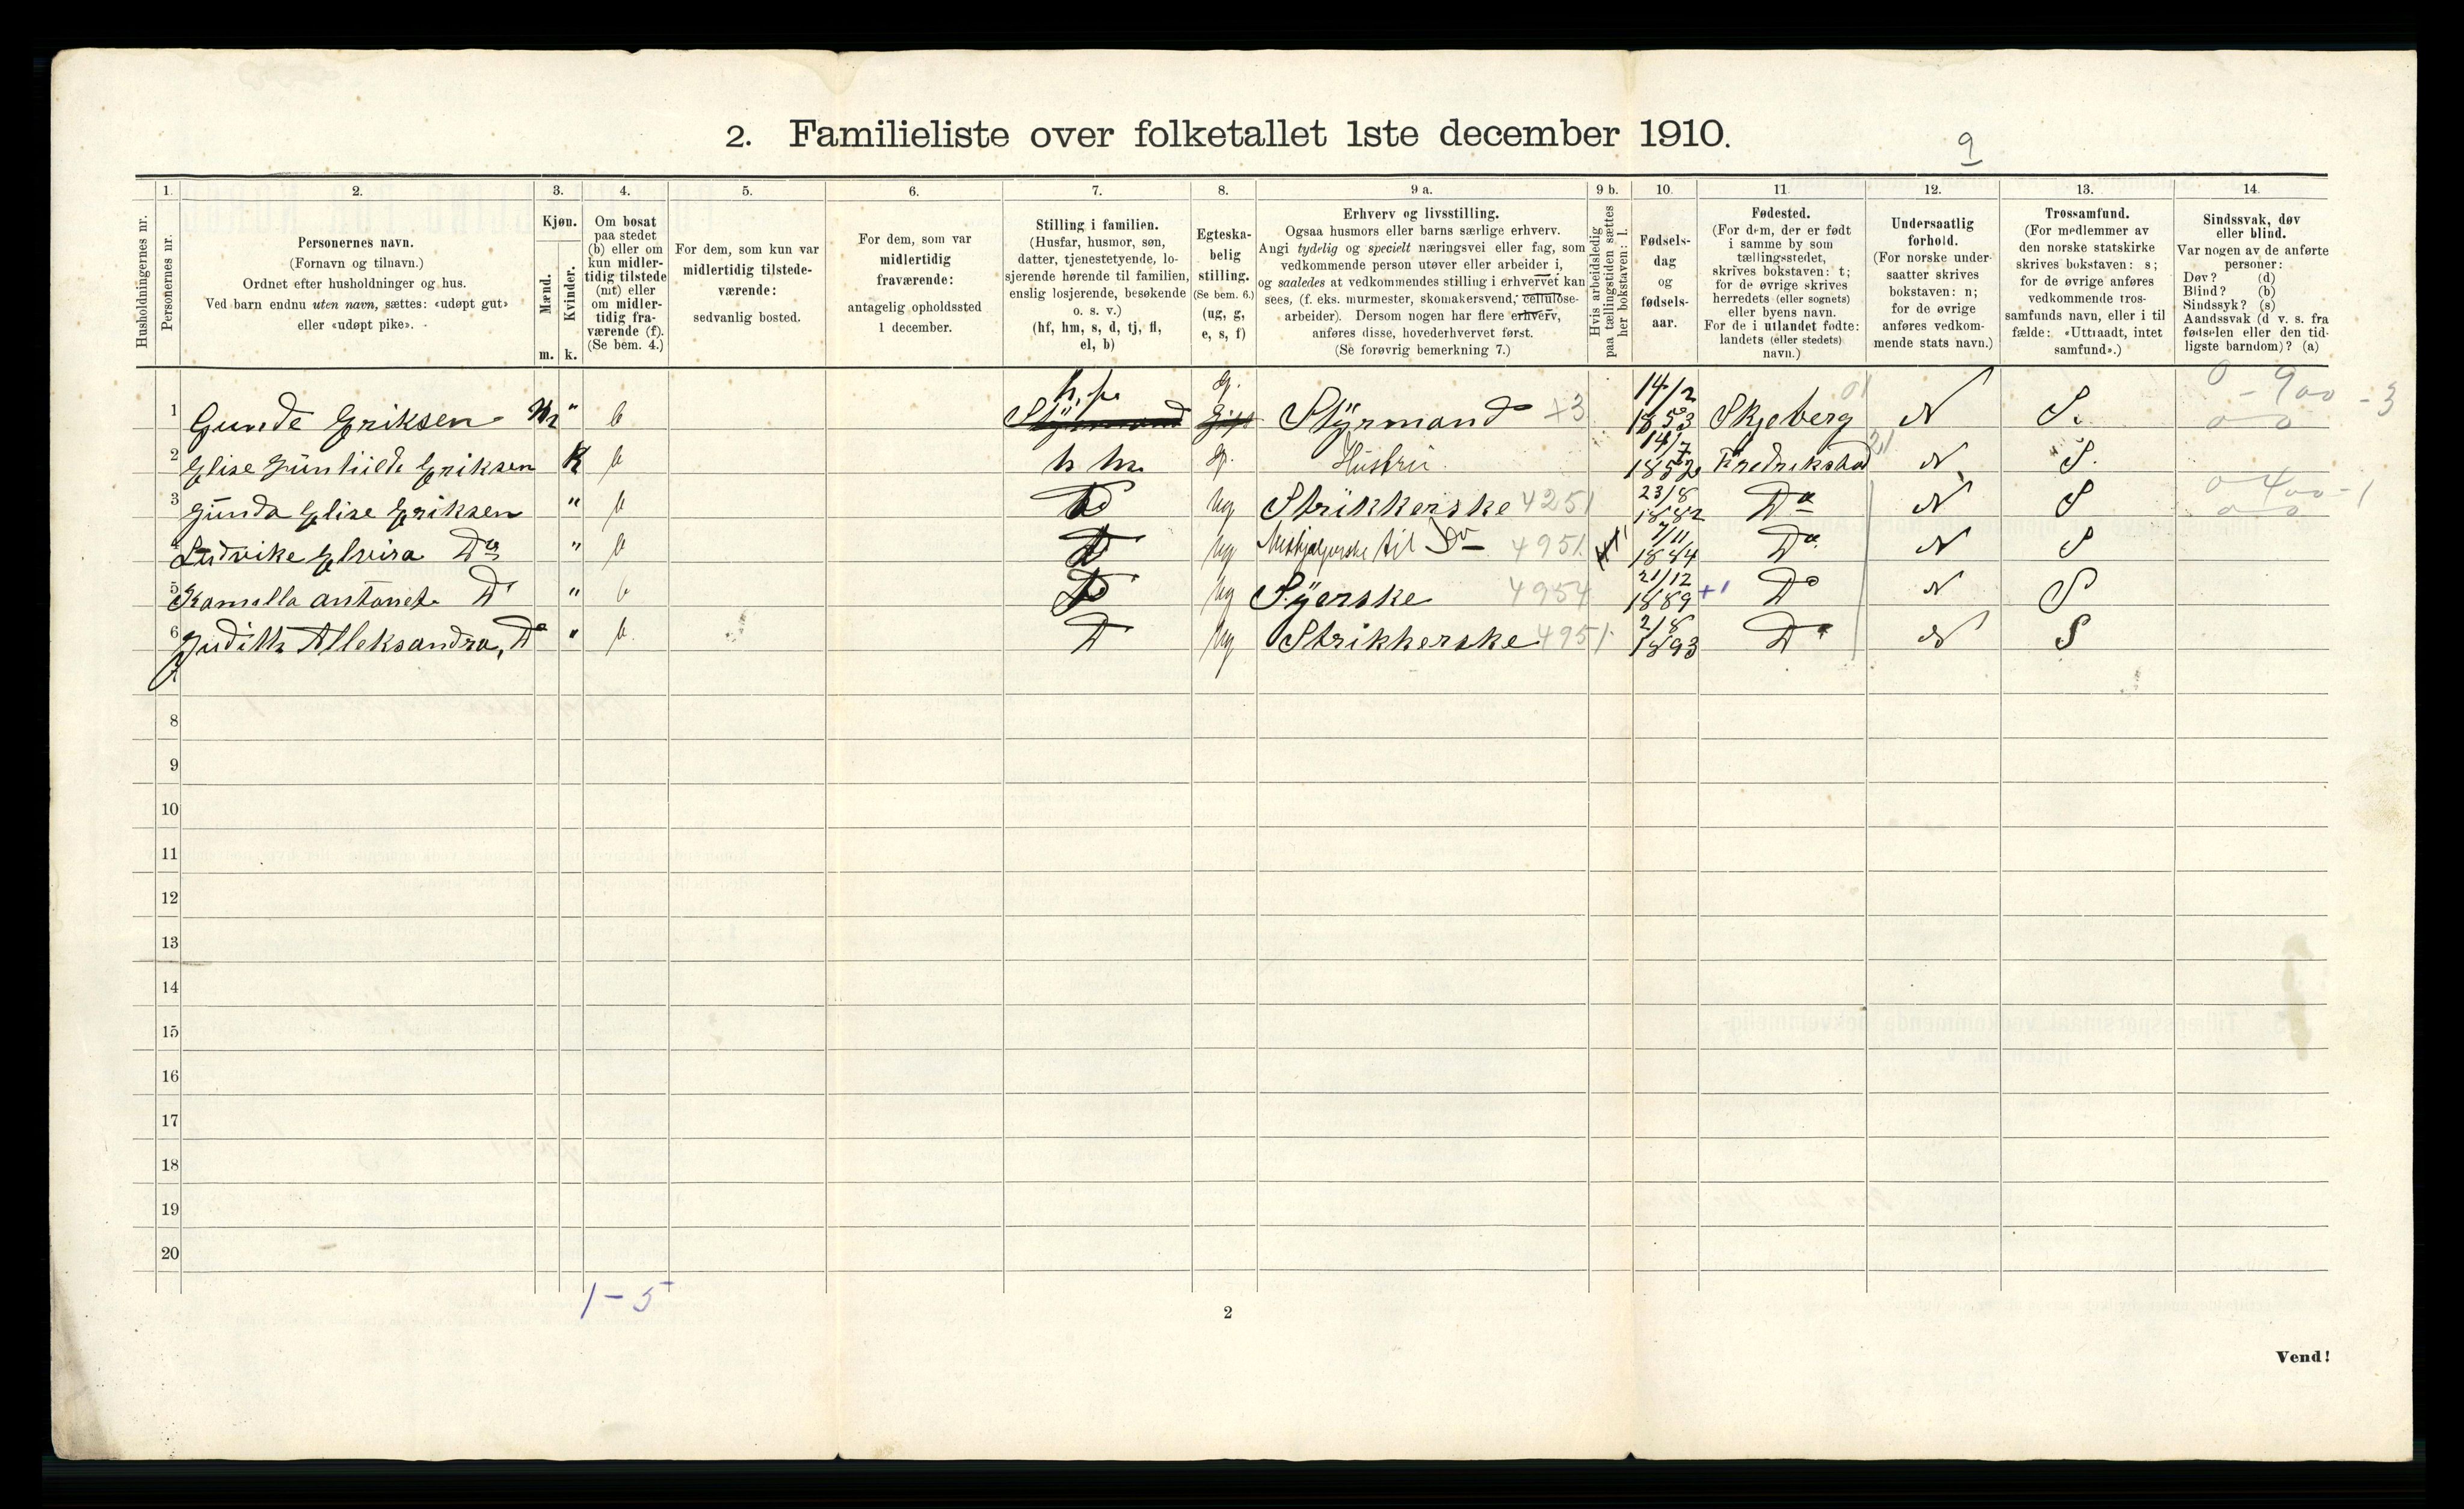 2. Familieliste over folketallet 1ste december 1910.
9
1. 2. 3. 4. 5. 6. 7. 8. 9 a. 9 b. 10. 11. 12. 13. 14.
Husholdningernes nr.
Personernes nr.
Personernes navn.
(Fornavn og tilnavn.)
Ordnet efter husholdninger og hus.
Ved barn endnu uten navn, sættes: «udøpt gut»
eller «udøpt pike».
Kjøn.
Mænd.
Kvinder.
m. k.
Om bosat
paa stedet
(b) eller om
kun midler-
tidig tilstede
(mt) eller
om midler-
tidig fra-
værende (f).
(Se bem. 4.)
For dem, som kun var
midlertidig tilstede-
værende:
sedvanlig bosted.
For dem, som var
midlertidig
fraværende:
antagelig opholdssted
1 december.
Stilling i familien.
(Husfar, husmor, søn,
datter, tjenestetyende, lo-
sjerende hørende til familien,
enslig losjerende, besøkende
o. s. v.)
(hf, hm, s, d, tj, fl,
el, b)
Egteska-
belig
stilling.
(Se bem. 6.)
(ug, g,
e, s, f)
Erhverv og livsstilling.
Ogsaa husmors eller barns særlige erhverv.
Angi tydelig og specielt næringsvei eller fag, som
vedkommende person utøver eller arbeider i,
og saaledes at vedkommendes stilling i erhvervet kan
sees, (f. eks. murmester, skomakersvend, cellulose-
arbeider). Dersom nogen har flere erhverv,
anføres disse, hovederhvervet først.
(Se forøvrig bemerkning 7.)
Hvis arbeidsledig
paa tællingstiden sættes
her bokstaven: l.
Fødsels-
dag
og
fødsels-
aar.
Fødested.
(For dem, der er født
i samme by som
tællingsstedet,
skrives bokstaven: t;
for de øvrige skrives
herredets (eller sognets)
eller byens navn.
For de i utlandet fødte:
landets (eller stedets)
navn.)
Undersaatlig
forhold.
(For norske under-
saatter skrives
bokstaven: n;
for de øvrige
anføres vedkom-
mende stats navn.)
Trossamfund.
(For medlemmer av
den norske statskirke
skrives bokstaven: s;
for de øvrige anføres
vedkommende tros-
samfunds navn, eller i til
fælde: «Uttraadt, intet
samfund».)
Sindssvak, døv
eller blind.
Var nogen av de anførte
personer:
Døv? (d)
Blind? (b)
Sindssyk? (s)
Aandssvak (d v. s. fra
fødselen eller den tid-
ligste barndom)? (a)
1 Gunde Eriksen m " b h.f. g. Styrmand +3 14/2 1853 Skjeberg 01 N S. 0 - 900 - 3
2 Elise Günhilde Eriksen K b h m. g. Hustru. 14/7 1852 Fredrikstad N S.
3 Günda Elise Eriksen " b D ug Strikkerske 4251 23/8 1882 Do N S 0 400 - 1
4 Ludvike Elvira Do " b D ug til Do 4951 7/11 1884 Do N S
5 Kamilla Antonet. Do " b D ug Syerske 4954 21/12 1889 +1 Do N S
6 Judith Alleksandra, Do " b. D ug Strikkerske 4951 2/8 1893 Do N S
8
9
10
11
12
13
14
15
16
17
18
19
20
1 - 5
2
Vend!